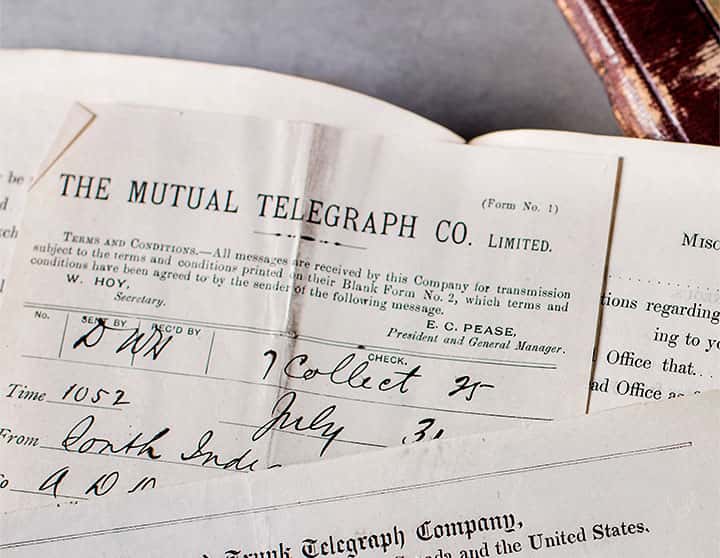 (Form No. 1)
THE MUTUAL TELEGRAPH CO. LIMITED.
TERMS AND CONDITIONS.—All messages are received by this Company for transmission
subject to the terms and conditions printed on their Blank Form No. 2, which terms and
conditions have been agreed to by the sender of the following message.
W. HOY,
Secretary.
E. C. PEASE,
President and General Manager.
No. SENT BY REC'D BY CHECK.
D WH 7 Collect 25
Time 1052
July 31
From
be
Misc
tions regarding
ing to yo
Office that...
ad Office as
Trunk Telegraph Company,
Canada and the United States.